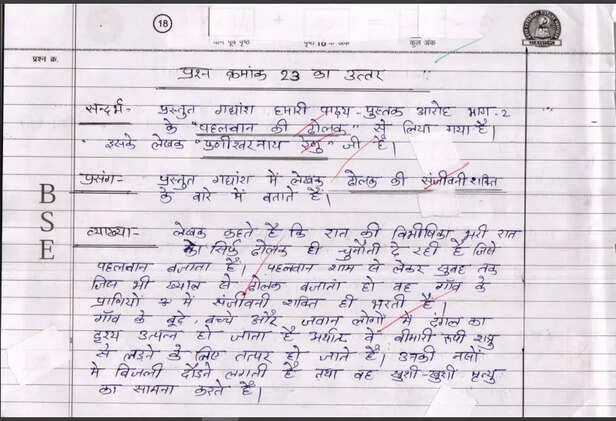 18
पृष्ठ 10 के अंक
कुल अंक
प्रश्न क्र.
प्रश्न क्रमांक 23 का उत्तर
सन्दर्भ:- प्रस्तुत गद्यांश हमारी पाठ्य-पुस्तक आरोह भाग-2
के "पहलवान की ढोलक" से लिया गया है।
इसके लेखक "फणीश्वरनाथ रेणु" जी है।
प्रसंग:- प्रस्तुत गद्यांश में लेखक ढोलक की संजीवनी शक्ति
के बारे में बताते है।
BSE
व्याख्या:- लेखक कहते है कि रात की विभीषिका भरी रात
को सिर्फ ढोलक ही चुनौती दे रही है जिसे
पहलवान बजाता है। पहलवान शाम से लेकर सुबह तक
जिस भी ख्याल से ढोलक बजाता हो वह गाँव के
प्राणियों में संजीवनी शक्ति ही भरती है।
गाँव के बूढ़े, बच्चे और जवान लोगों में दंगल का
दृश्य उत्पन्न हो जाता है अर्थात वे बीमारी रूपी शत्रु
से लड़ने के लिए तत्पर हो जाते है। उनकी नसों
में बिजली दौड़ने लगती है तथा वह खुशी-खुशी मृत्यु
का सामना करते है।